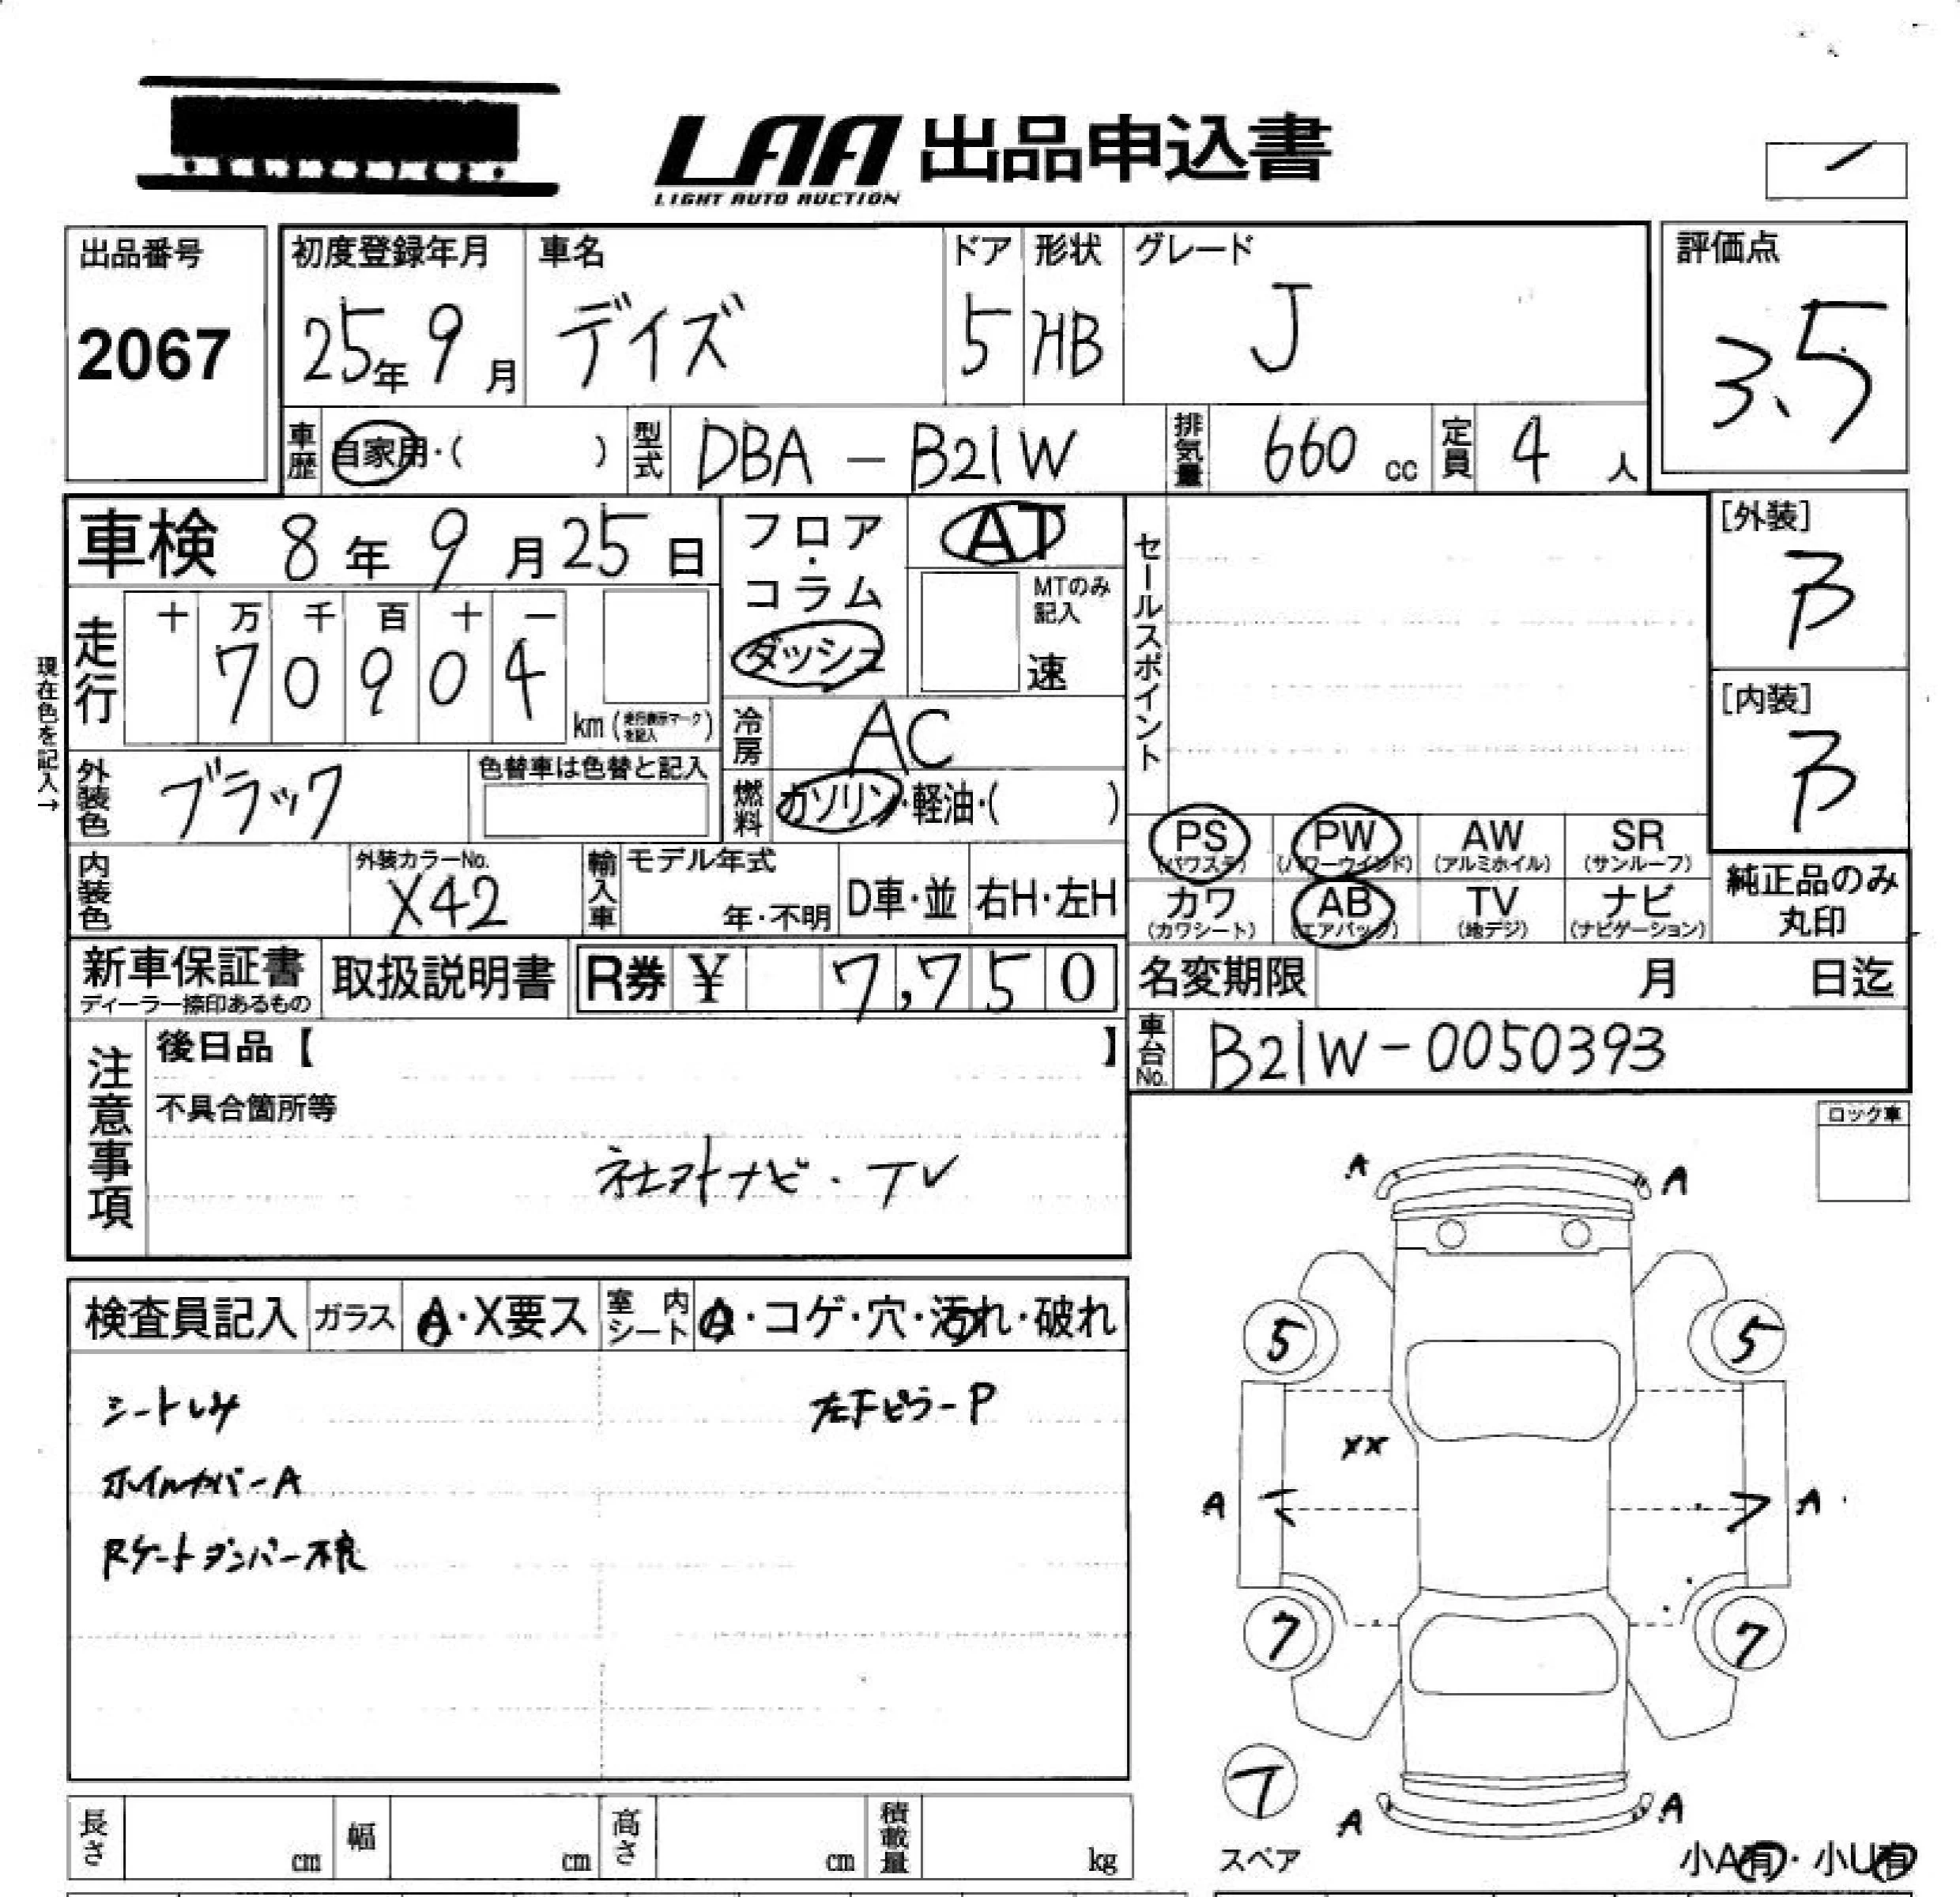 LAA 出品申込書
LIGHT AUTO AUCTION
出品番号
2067
初度登録年月
25年 9月
車名
デイズ
ドア
5
形状
HB
グレード
J
評価点
3.5
車歴
自家用・( )
型式
DBA - B21W
排気量
660 cc
定員
4 人
車検 8年 9月 25日
フロア・コラム
ダッシュ
AT
MTのみ記入
速
セールスポイント
[外装]
B
[内装]
B
現在色を記入→
走行
十 万 千 百 十 一
7 0 9 0 4
km (走行表示マークを記入)
冷房
AC
外装色
ブラック
色替車は色替と記入
燃料
ガソリン・軽油・( )
PS (パワステ)
PW (パワーウインド)
AW (アルミホイル)
SR (サンルーフ)
内装色
外装カラーNo.
X42
輸入車
モデル年式
年・不明
D車・並
右H・左H
カワ (カワシート)
AB (エアバッグ)
TV (地デジ)
ナビ (ナビゲーション)
純正品のみ丸印
新車保証書
ディーラー捺印あるもの
取扱説明書
R券 ¥ 7,750
名変期限 月 日迄
注意事項
後日品【 】
車台No.
B21W-0050393
不具合箇所等
社外ナビ・TV
ロック車
検査員記入
ガラス
A・X要ス
室内シート
・コゲ・穴・汚れ・破れ
シートしみ
左FピラーP
ホイルカバーA
Rゲートダンパー不良
A A
5 5
XX
A A
7 7
T
スペア
A A
小A有・小U有
長さ cm
幅 cm
高さ cm
積載量 kg